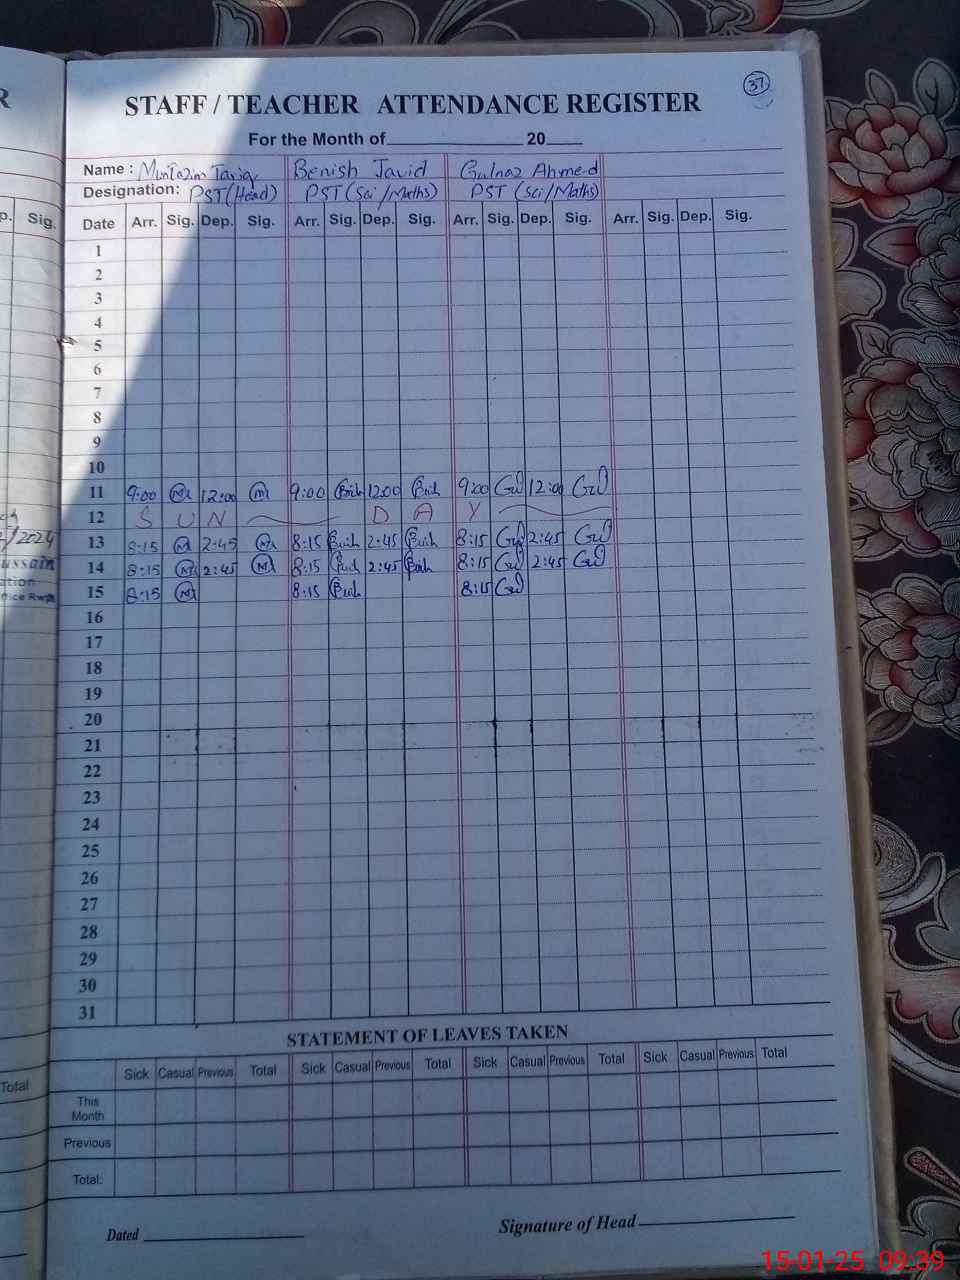 R
STAFF / TEACHER ATTENDANCE REGISTER
37
For the Month of 20
Name : Muntazim Tariq Benish Javid Gulnaz Ahmed
Designation: PST (Head) PST (Sci /Maths) PST (Sci/Maths)
p. Sig. Date Arr. Sig. Dep. Sig. Arr. Sig. Dep. Sig. Arr. Sig. Dep. Sig. Arr. Sig. Dep. Sig.
1
2
3
4
5
6
7
8
9
10
11 9:00 M 12:00 M 9:00 12:00 9:00 Gul 12:00 Gul
12 S U N D A Y
13 8:15 M 2:45 M 8:15 2:45 8:15 Gul 2:45 Gul
14 8:15 M 2:45 M 8:15 2:45 8:15 Gul 2:45 Gul
15 8:15 M 8:15 8:15 Gul
/2024
ussain
ation
fice Rwp
16
17
18
19
20
21
22
23
24
25
26
27
28
29
30
31
STATEMENT OF LEAVES TAKEN
Total Sick Casual Previous Total Sick Casual Previous Total Sick Casual Previous Total Sick Casual Previous Total
This
Month
Previous
Total:
Dated Signature of Head
15-01-25 09:39